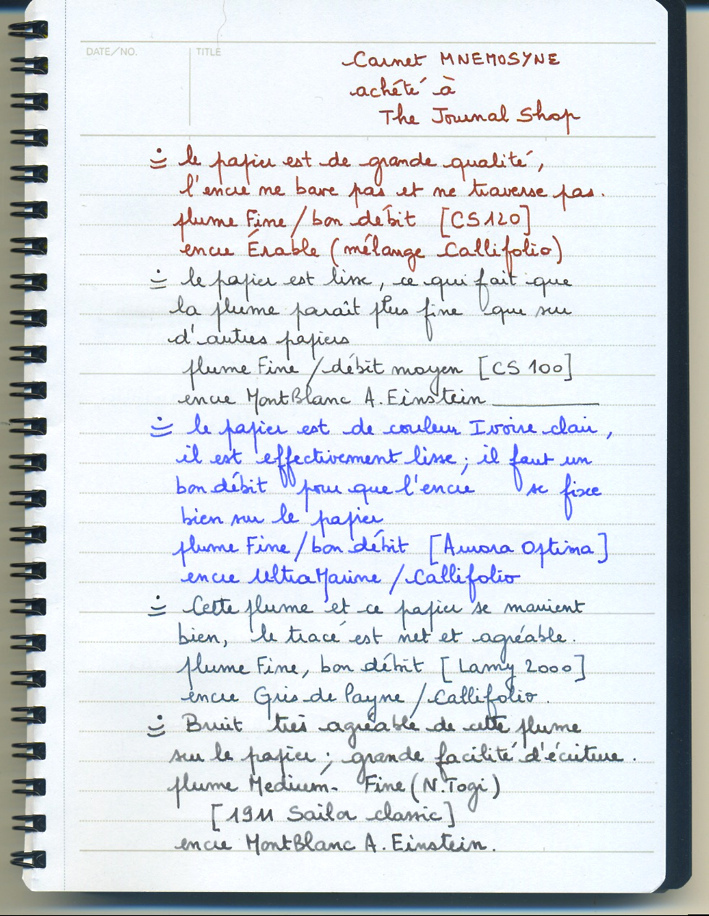 DATE/NO. TITLE
Carnet MNEMOSYNE
achété à
The Journal Shop
le papier est de grande qualité,
l'encre ne bave pas et ne traverse pas.
plume Fine / bon débit [CS120]
encre Érable (mélange Callifolio)
le papier est lisse, ce qui fait que
la plume paraît plus fine que sur
d'autres papiers
plume Fine / débit moyen [CS 100]
encre MontBlanc A. Einstein
le papier est de couleur Ivoire clair,
il est effectivement lisse ; il faut un
bon débit pour que l'encre se fixe
bien sur le papier
plume Fine / bon débit [Aurora Optima]
encre UltraMarine / Callifolio
Cette plume et ce papier se marient
bien, le tracé est net et agréable.
plume Fine, bon débit [Lamy 2000]
encre Gris de Payne / Callifolio.
Bruit très agréable de cette plume
sur le papier ; grande facilité d'écriture.
plume Medium- Fine (N.Togi)
[1911 Sailor classic]
encre MontBlanc A. Einstein.